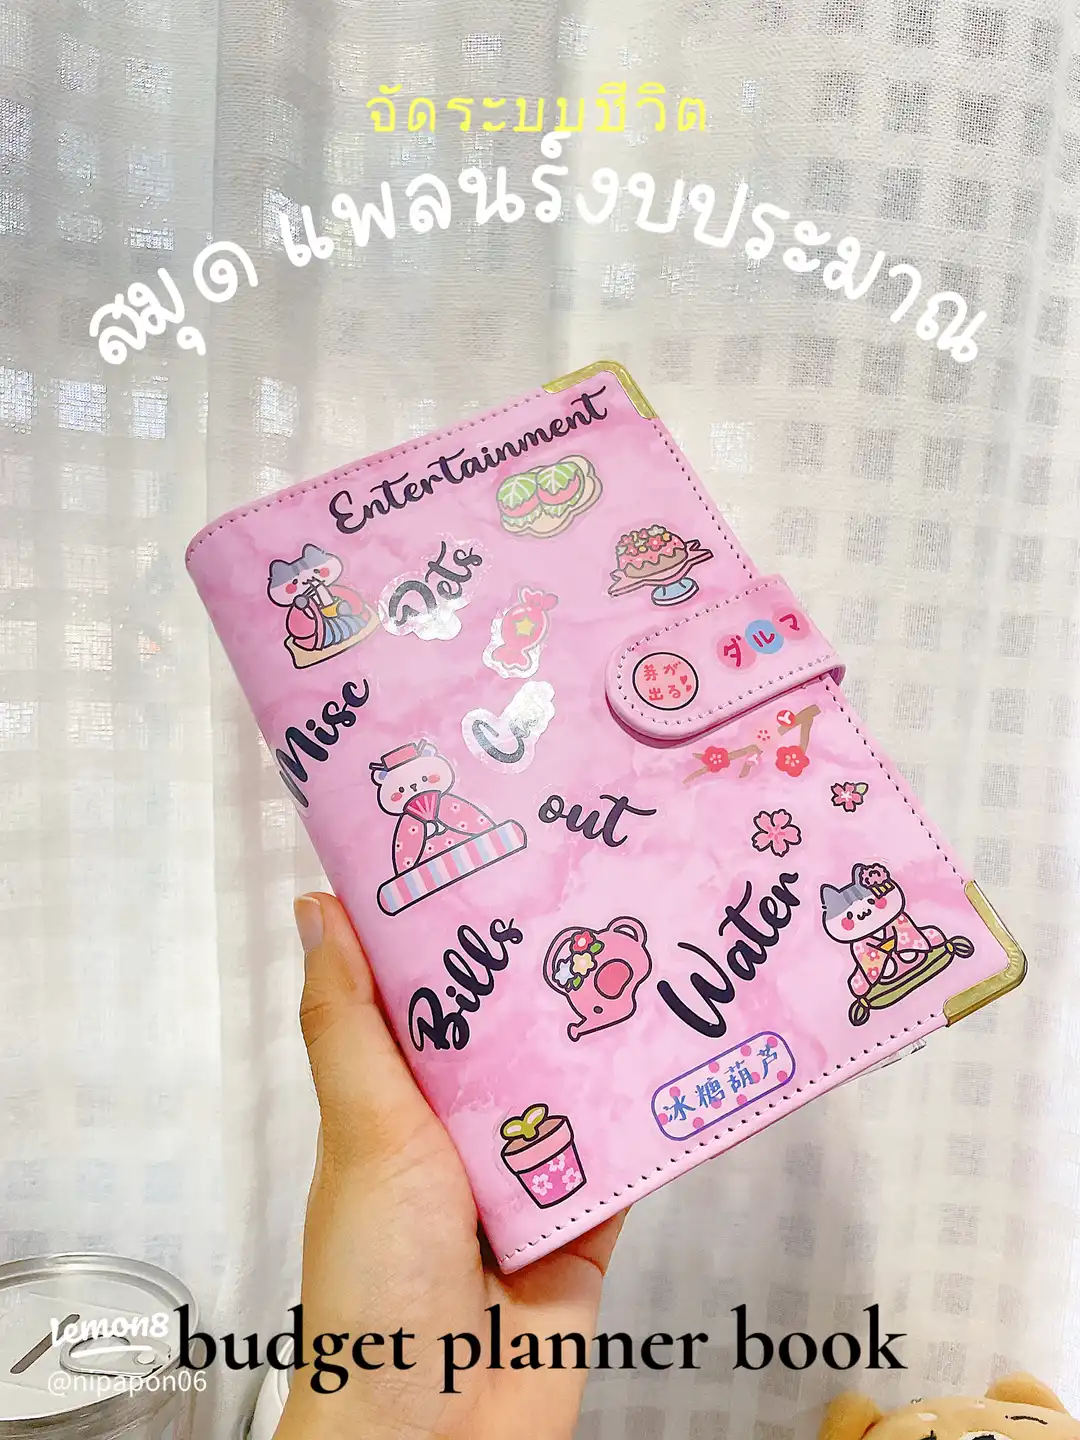 จัดระบบชีวิต
สมุด แพลนร์งบประมาณ
Entertainment
Pets
ダルマ
券が
出る
Misc
out
Bills
Water
冰糖葫芦
budget planner book
lemon8
@nipapon06